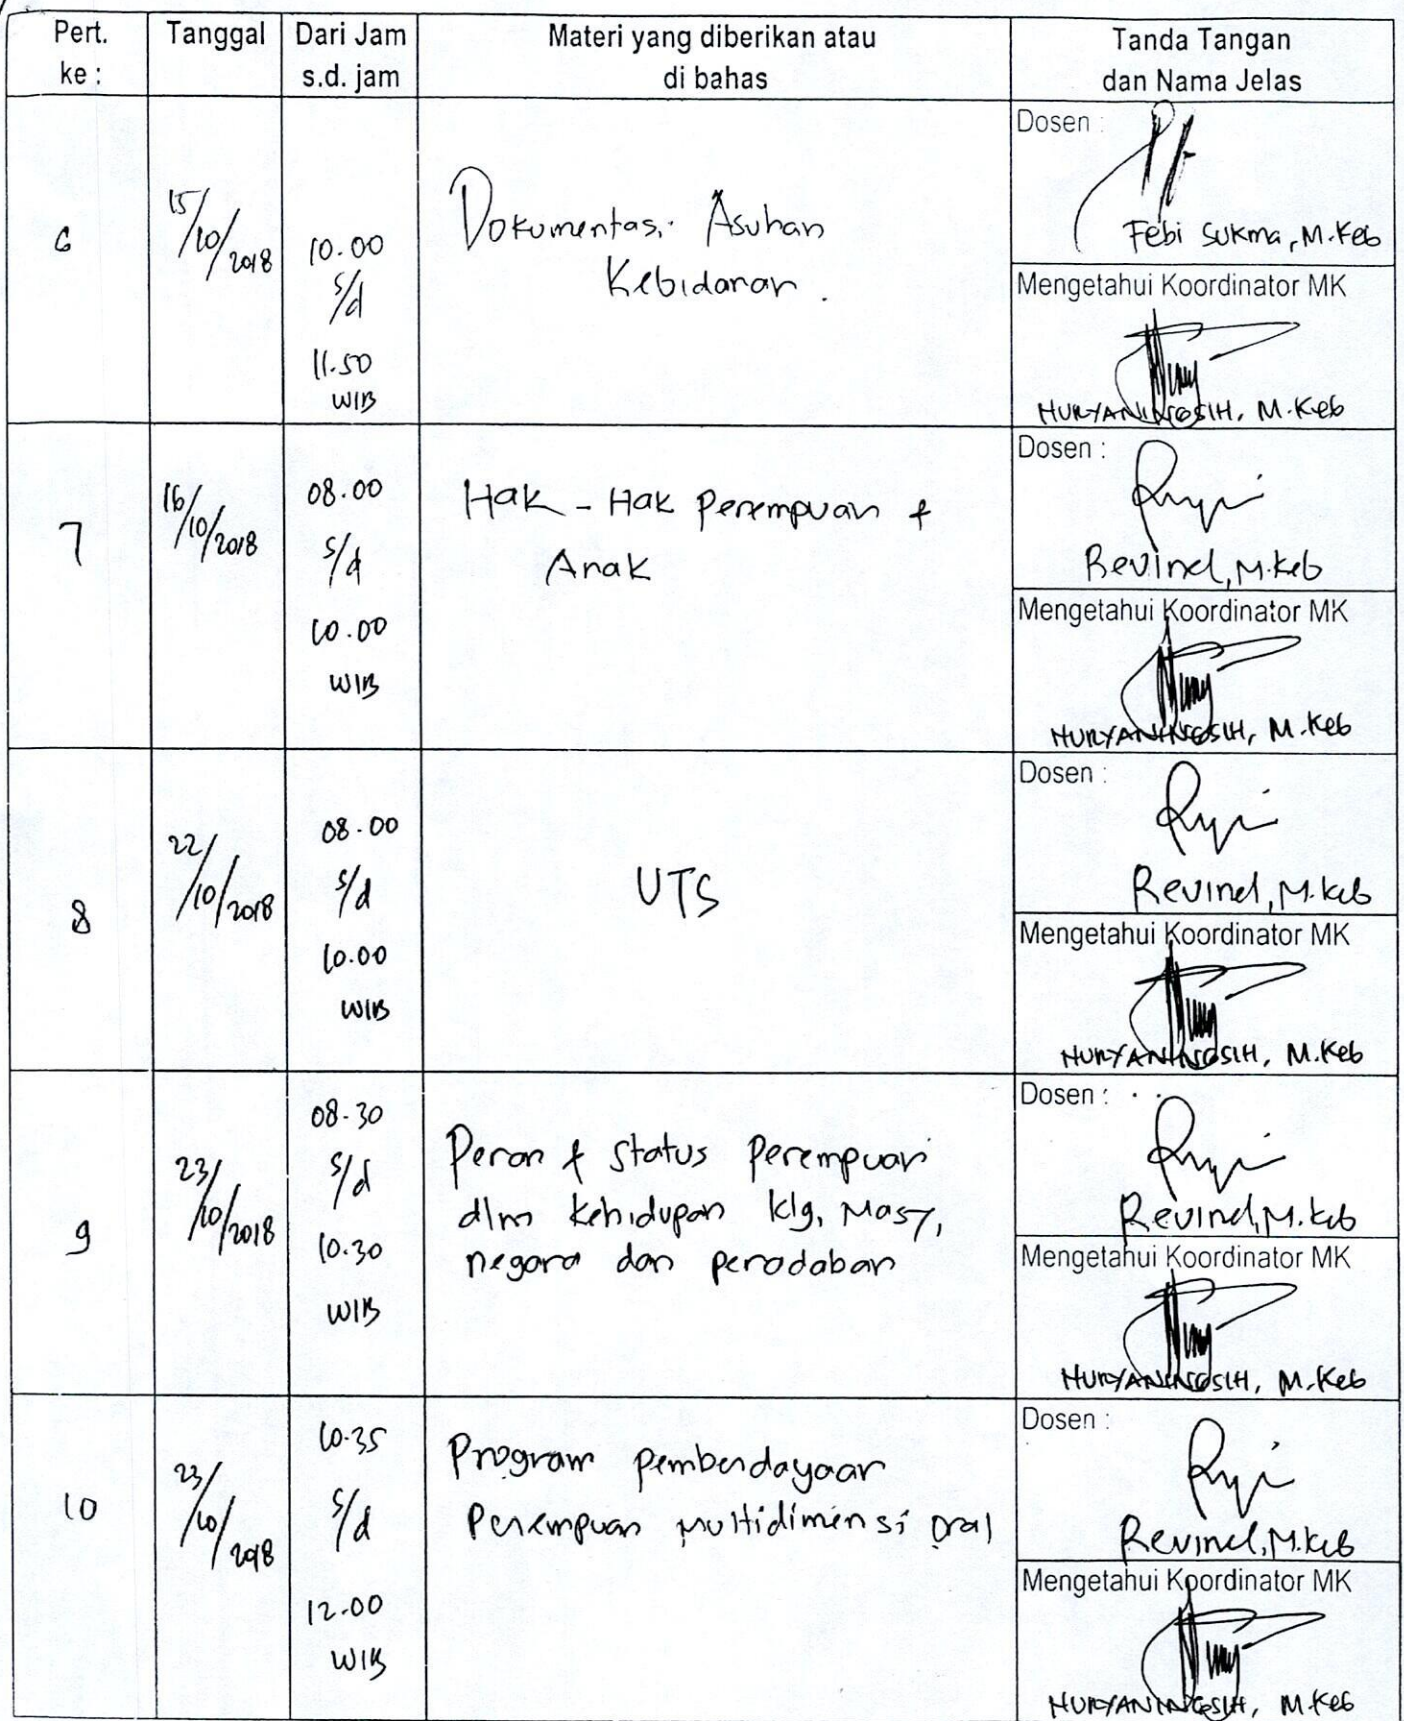 Pert. ke :
Tanggal
Dari Jam s.d. jam
Materi yang diberikan atau di bahas
Tanda Tangan dan Nama Jelas
6
15/10/2018
10.00
s/d
11.50
WIB
Dokumentasi Asuhan
Kebidanan.
Dosen :
Febi Sukma, M.Keb
Mengetahui Koordinator MK
NURYANINGSIH, M.Keb
7
16/10/2018
08.00
s/d
10.00
WIB
Hak - Hak Perempuan &
Anak
Dosen :
Revinel, M.Keb
Mengetahui Koordinator MK
NURYANINGSIH, M.Keb
8
22/10/2018
08.00
s/d
10.00
WIB
UTS
Dosen :
Revinel, M.Keb
Mengetahui Koordinator MK
NURYANINGSIH, M.Keb
9
23/10/2018
08.30
s/d
10.30
WIB
Peran & Status Perempuan
dlm kehidupan klg, Masy,
negara dan peradaban
Dosen :
Revinel, M.Keb
Mengetahui Koordinator MK
NURYANINGSIH, M.Keb
10
23/10/2018
10.35
s/d
12.00
WIB
Program pemberdayaan
Perempuan multidimensi onal
Dosen :
Revinel, M.Keb
Mengetahui Koordinator MK
NURYANINGSIH, M.Keb